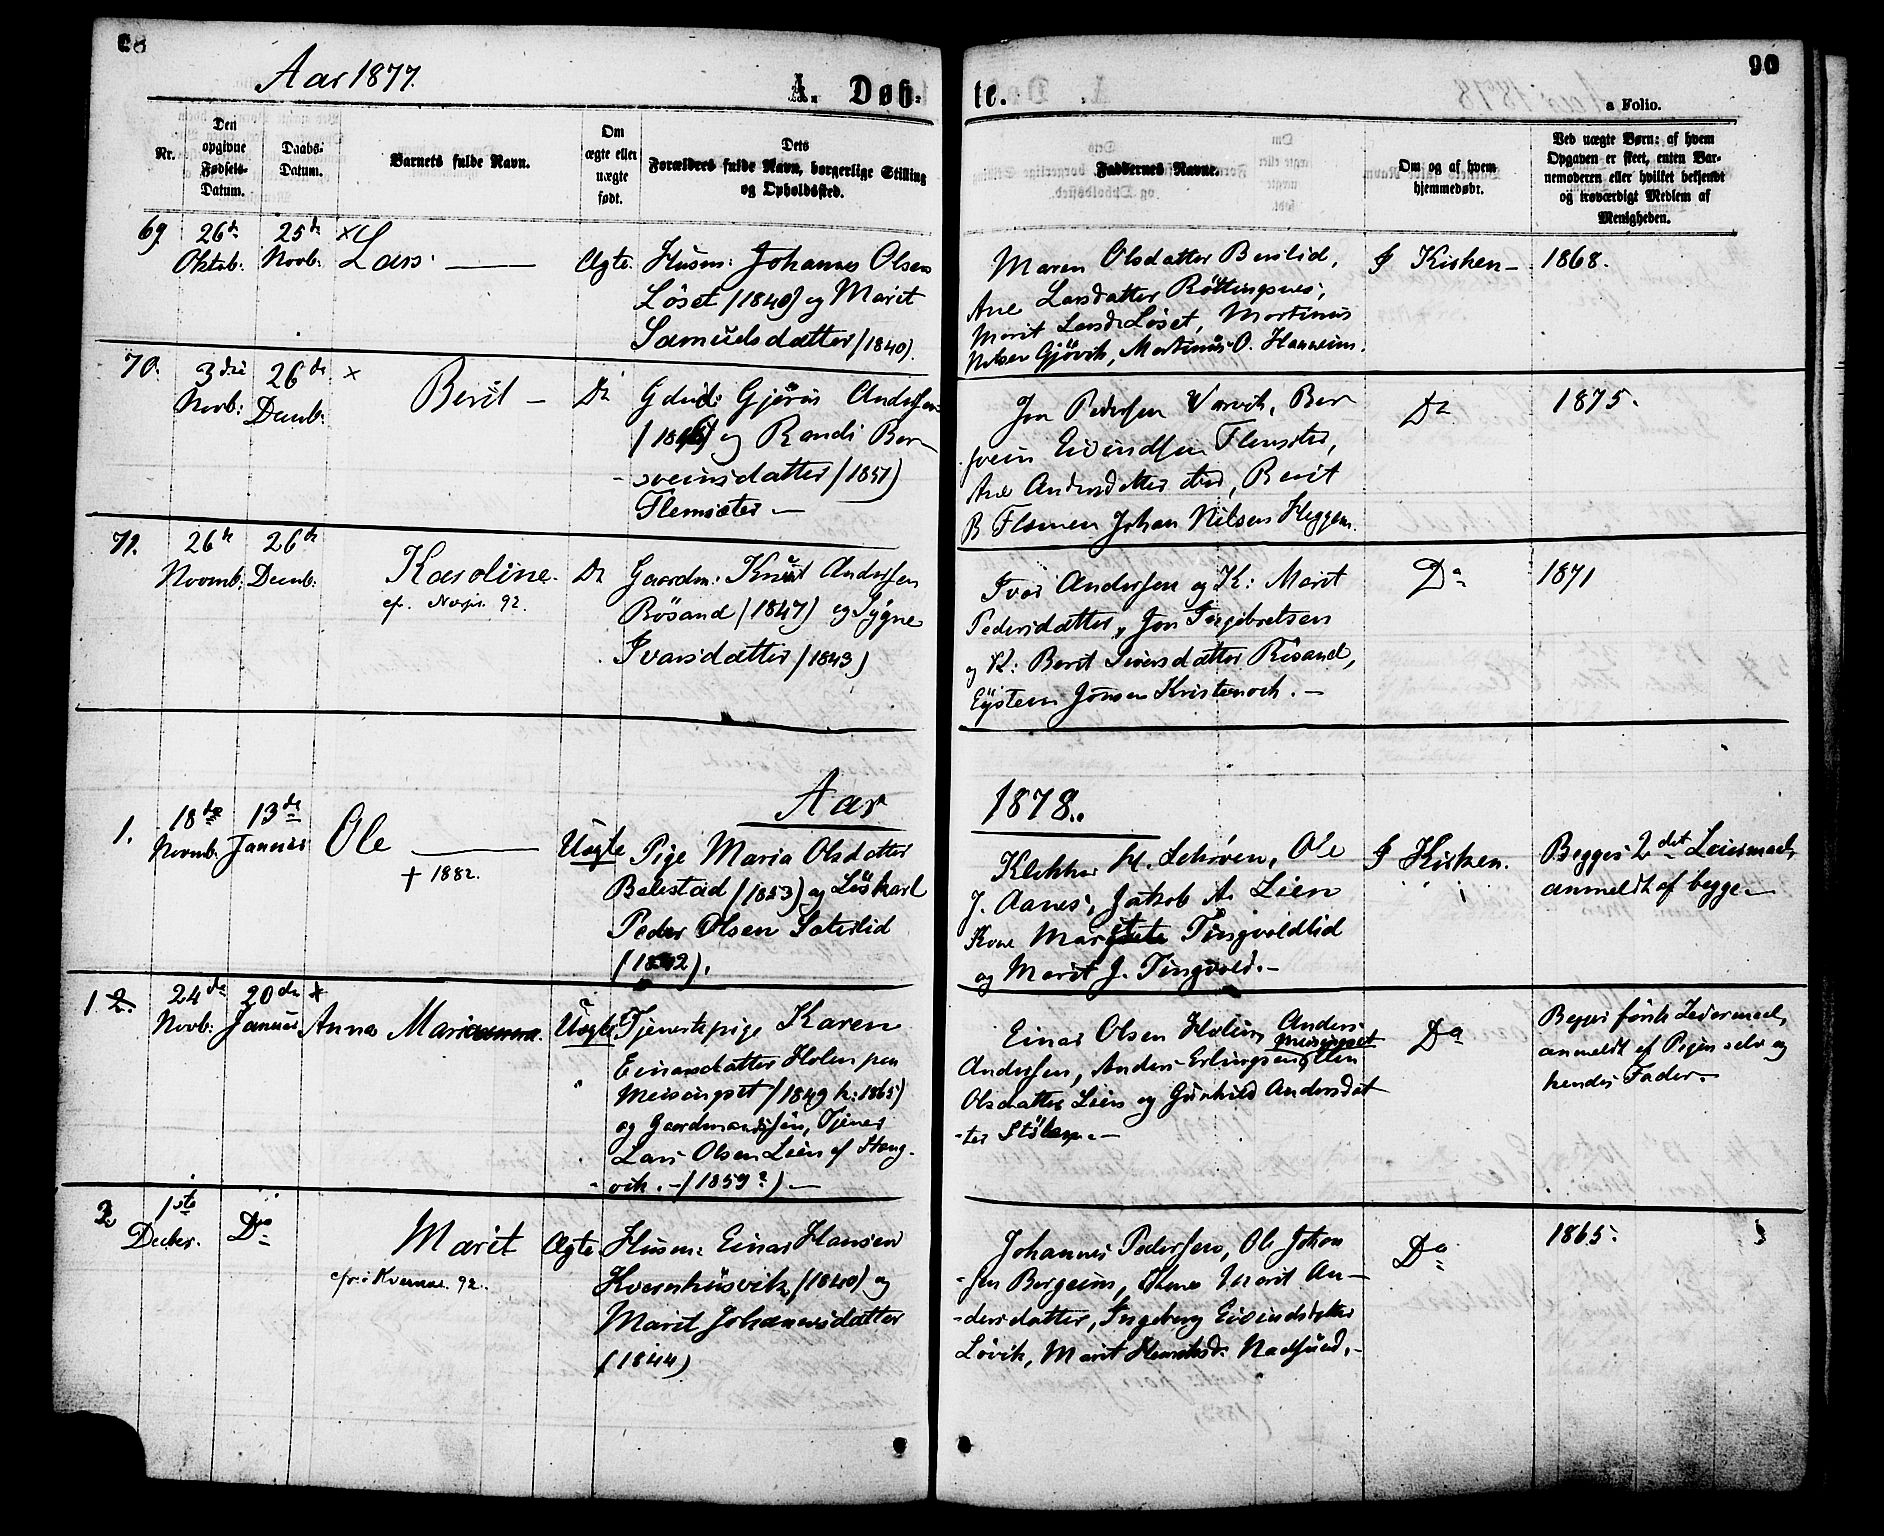 Aar 1877.
A. Døb-
te.
90
a Folio.
Nr.
Den
opgivne
Fødsels-
Datum.
Daabs-
Datum.
Barnets fulde Navn.
Om
ægte eller
uægte
født.
Dets
Forældres fulde Navn, borgerlige Stilling
og Opholdssted.
Faddernes Navne.
Om og af hvem
hjemmedøbt.
Ved uægte Børn: af hvem
Opgaven er skeet, enten Bar-
nemoderen eller hvilket bekjendt
og troværdigt Medlem af
Menigheden.
69
26de
Oktob:
25de
Novb:
× Lars
Ægte
Husm: Johannes Olsen
Löset (1840) og Marit
Samuelsdatter (1840).
Maren Olsdatter Berslid,
Ane Larsdatter Röttingsnes,
Marit Larsd: Löset, Martinus
Nilsen Gjövik, Martinus O. Hanseim.
I Kirken
1868.
70.
3die
Novb:
26de
Decmb:
× Berit
Do
Gjörds Andersen
og Randi Ber-
sveinsdatter (1851)
Flemsæter
Jon Pedersen Vorvik, Ber-
svein Eivindsen Flemsæter,
Ane Andersdatter ibid, Berit
B Flemsæ Johan Nilsen Heggem.
Do
1875.
71.
26de
Novmb:
26de
Decmb:
Karoline.
92.
Do
Gaardm: Knut Andersen
Rösand (1847) og Sygne
Ivarsdatter (1843)
Ivar Andersen og K: Marit
Pedersdatter, Jon Ingebretsen
og K: Berit Siversdatter Rösand,
Eystein Jonsen Kristvik.
Do
1871
Aar
1878.
1.
18de
Novmb.
13de
Januar
Ole
† 1882.
Uægte
Pige Maria Olsdatter
Belestad (1853) og Löskarl
Peder Olsen Sæterlid
Klokker H. Schröven, Ole
J. Aanes, Jakob A. Lien
Kone Margrete Tingvoldlid
og Marit J. Tingvold.
I Kirken.
Begges 2det Leiermaal,
anmeldt af begge
1. 2.
24de
Novb:
20de
Januar
× Anna Marianna.
Uægte
Tjenestepige Karen
Einarsdatter Holen paa
Meisingset (1849 k: 1865)
og Gaardmandssøn, Tjener
Lars Olsen Lien af Stang-
vik. (1859?)
Einar Olsen Holen, Anders
Meisingset
Andersen, Anders Erlingsen, Ellen
Olsdatter Lien og Gunhild Andersdat-
ter Stölen.
Do
Begges förste Leiermaal,
anmeldt af Pigen selv og
hendes Fader.
1ste
Decbr.
Do
Marit
i Kvernæs 92.
Ægte
Husm: Einar Hansen
Kvernhusvik (1840) og
Marit Johannesdatter
(1844)
Johannes Pedersen, Ole Johan-
sen Bergeim, Kone Marit An-
dersdatter, Ingeborg Eivindsdatter
Lövik, Marit Henriksd: Nadsund.
Do
1865.